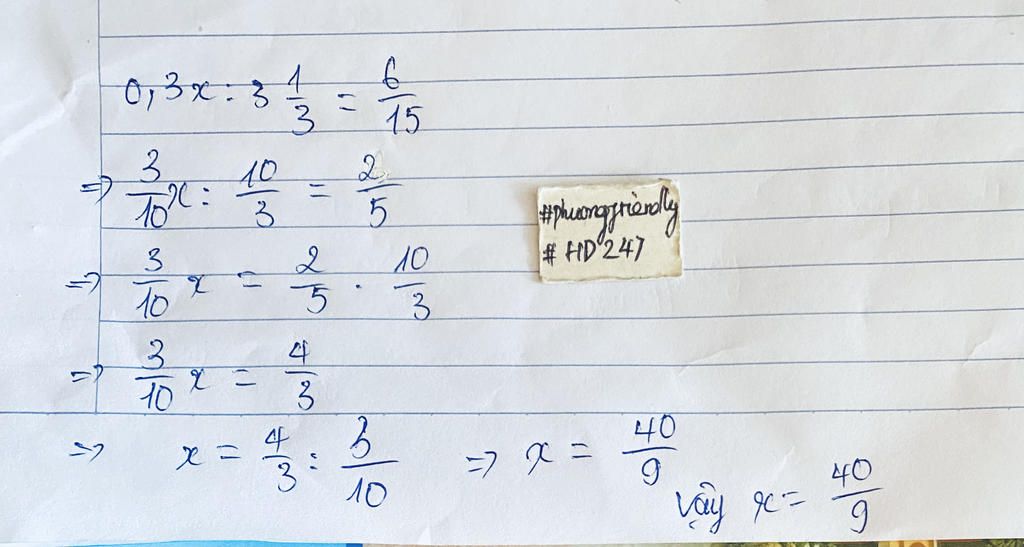 0,3x : 3 1/3 = 6/15
=> 3/10 x : 10/3 = 2/5
=> 3/10 x = 2/5 . 10/3
=> 3/10 x = 4/3
=> x = 4/3 : 3/10 => x = 40/9
Vậy x = 40/9
#phuongfriendly
# HD 247